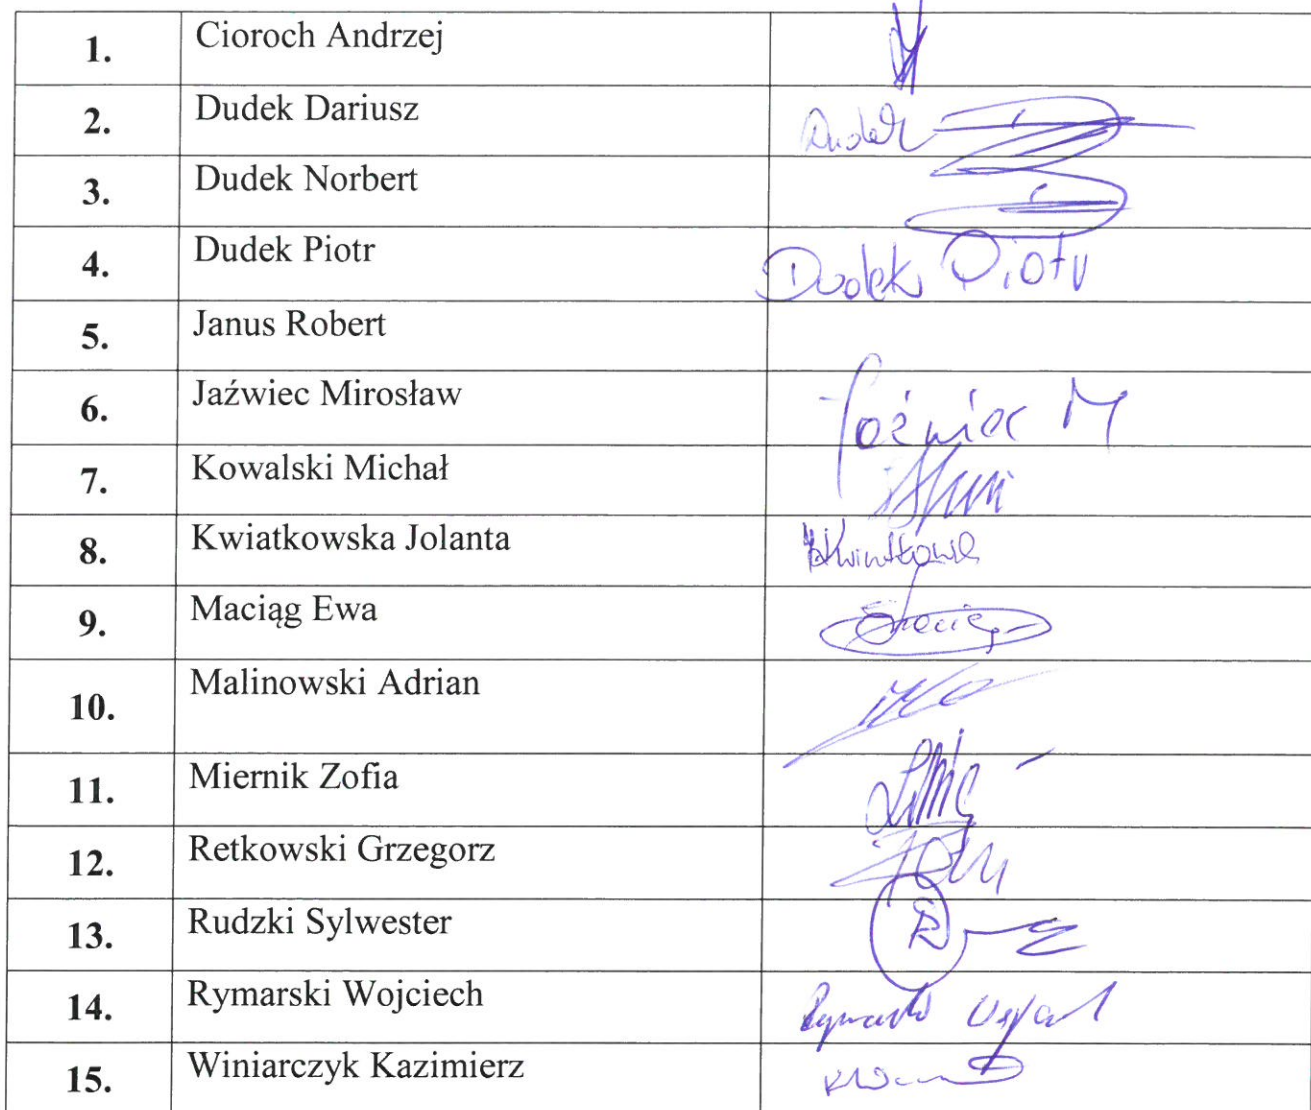 1. Cioroch Andrzej
2. Dudek Dariusz Dudek
3. Dudek Norbert
4. Dudek Piotr Dudek Piotr
5. Janus Robert
6. Jaźwiec Mirosław Jaźwiec M
7. Kowalski Michał
8. Kwiatkowska Jolanta
9. Maciąg Ewa
10. Malinowski Adrian
11. Miernik Zofia
12. Retkowski Grzegorz
13. Rudzki Sylwester
14. Rymarski Wojciech
15. Winiarczyk Kazimierz